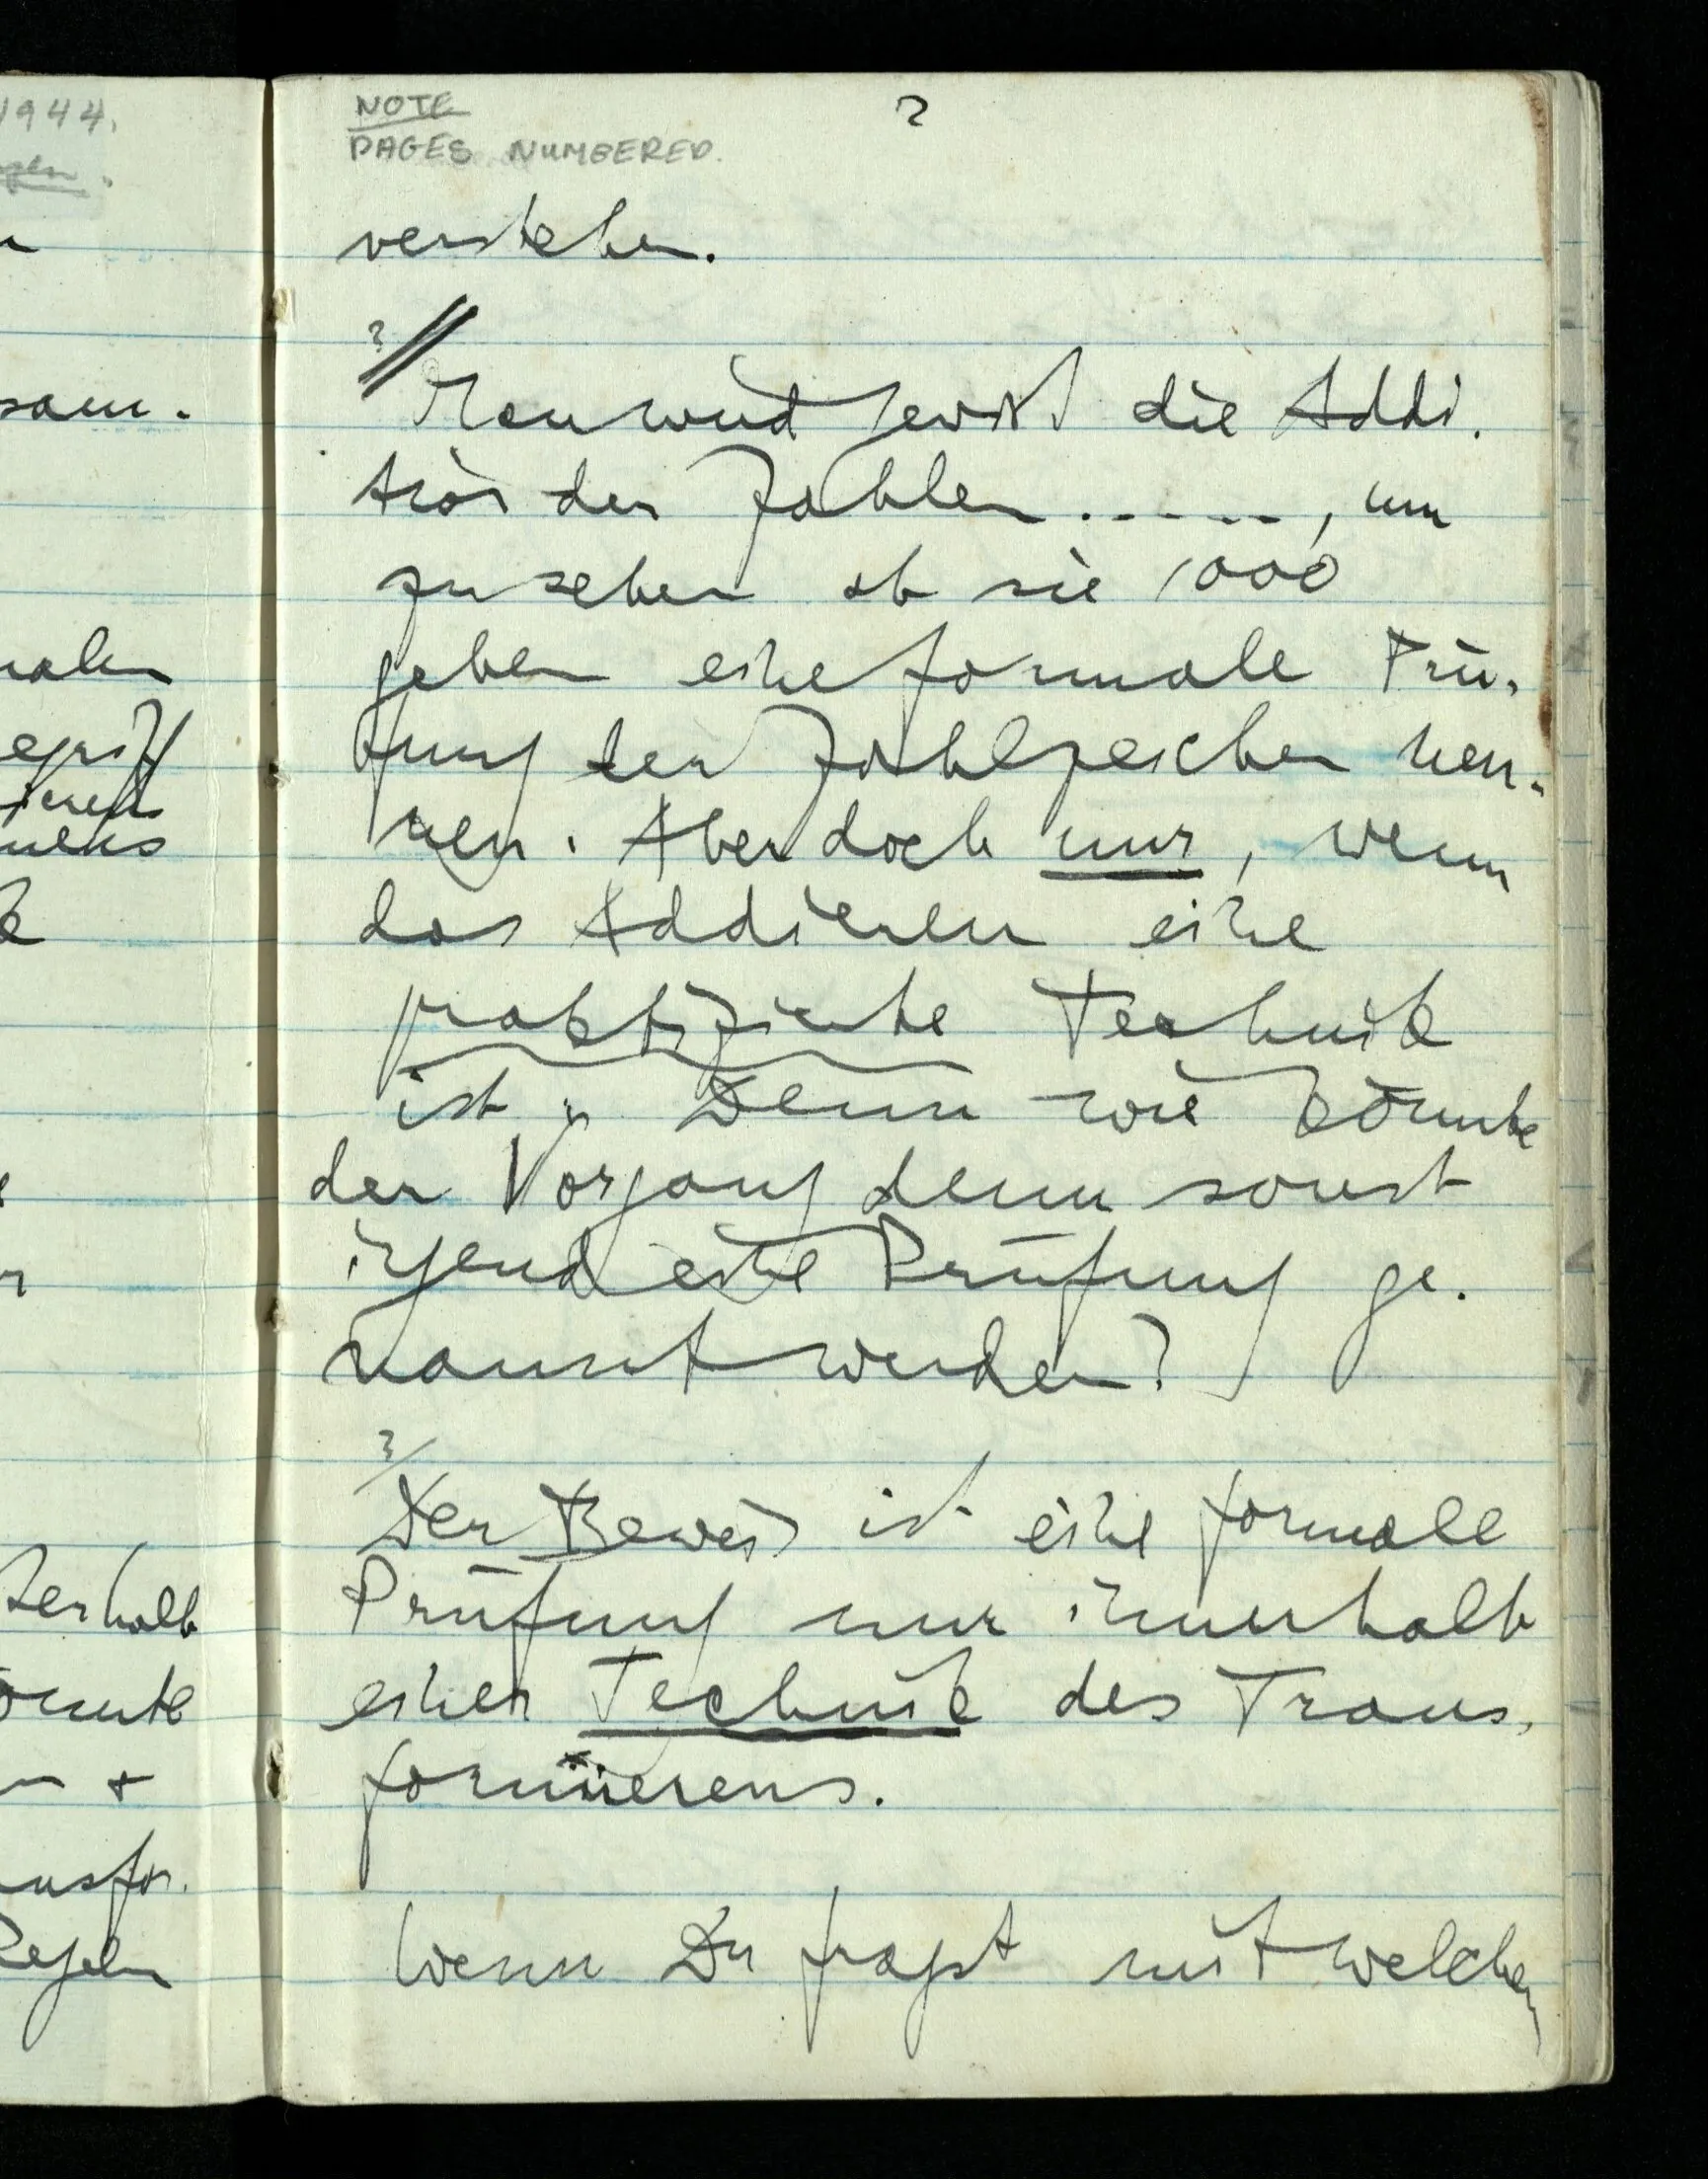 1944.
NOTE
PAGES NUMBERED.
2
verstehen.
?//
Man wird gewiß die Addi-
tion der Zahlen ......, um
zu sehen ob sie 1000
geben eine formale Prü-
fung der Zahlzeichen nen-
nen. Aber doch nur, wenn
das Addieren eine
praktizierte Technik
ist. Denn wie könnte
der Vorgang denn sonst
irgend eine Prüfung ge-
nannt werden?
?/
Der Beweis ist eine formale
Prüfung nur innerhalb
einer Technik des Trans-
formierens.
Wenn Du fragst mit welchem
sam.
egriff
terhalb
onnte
+
ansfor.
Regeln